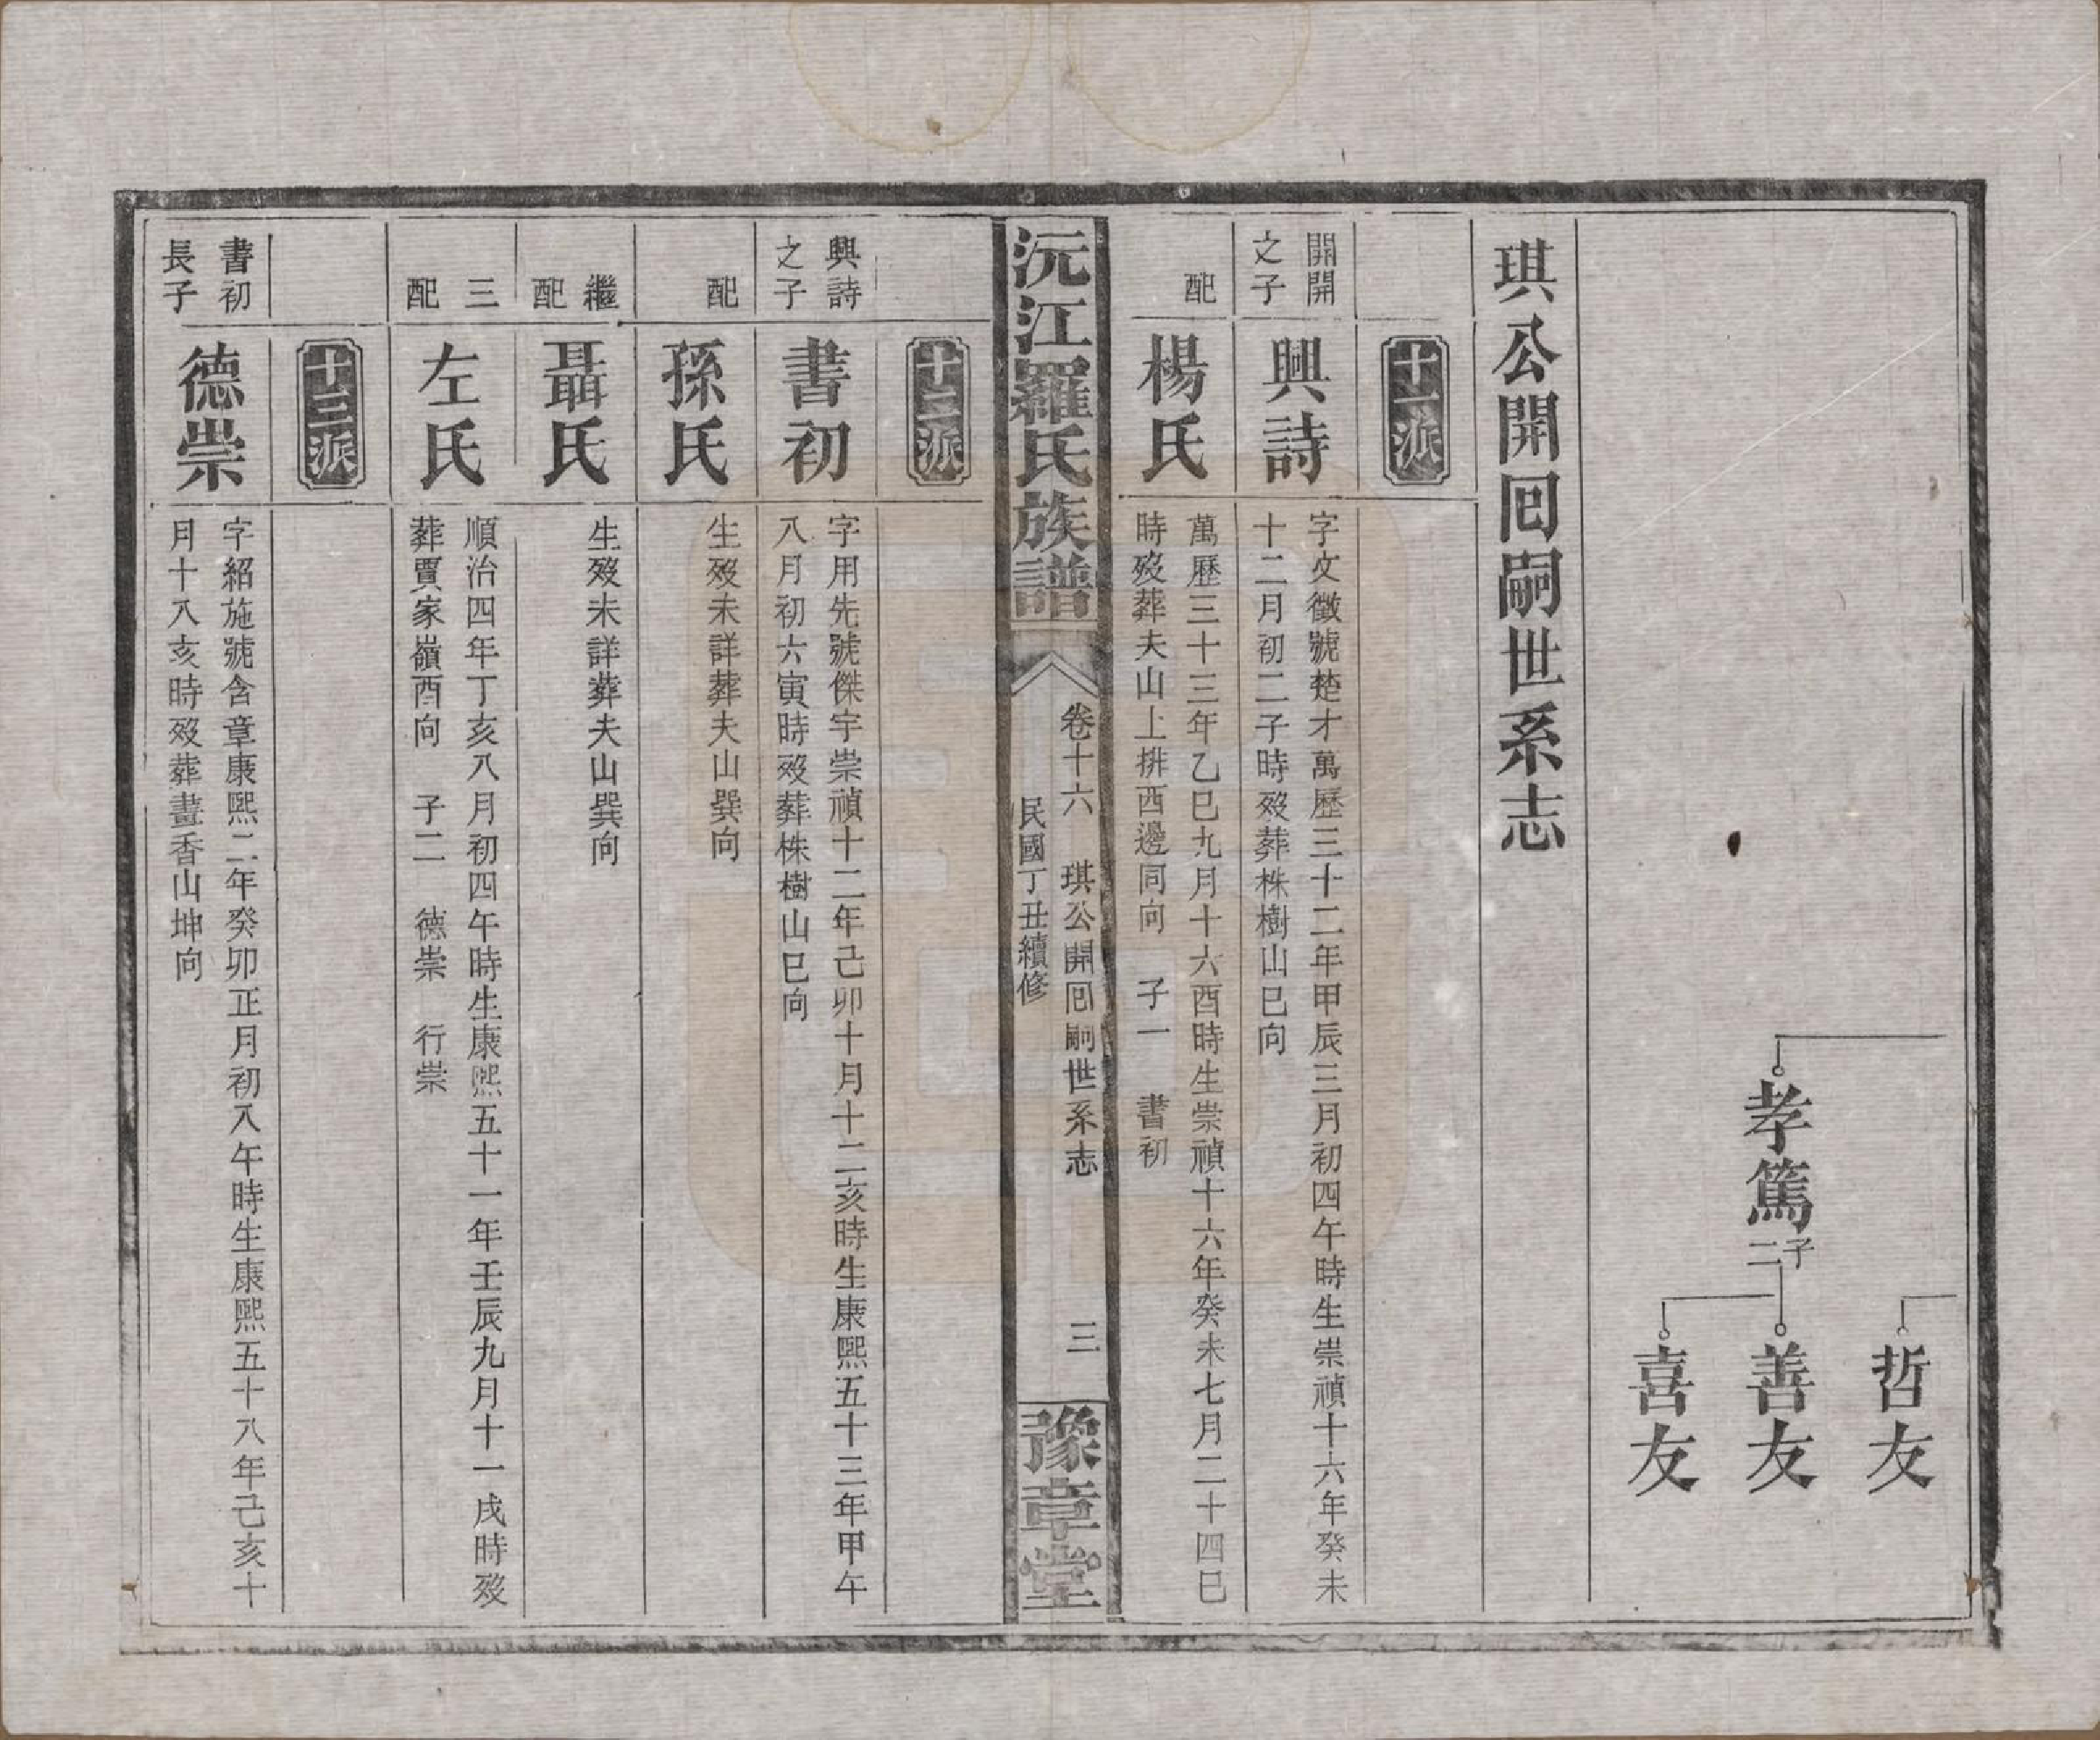 哲友
孝篤
子二
善友
喜友
琪公開囘嗣世系志
十一派
開開
之子
興詩
字文徵號楚才萬歷三十二年甲辰三月初四午時生崇禎十六年癸未
十二月初二子時歿葬株樹山巳向
配
楊氏
萬歷三十三年乙巳九月十六酉時生崇禎十六年癸未七月二十四巳
時歿葬夫山上排西邊同向 子一 書初
沅江羅氏族譜
卷十六 琪公開囘嗣世系志
民國丁丑續修
三
豫章堂
十二派
興詩
之子
書初
字用先號傑宇崇禎十二年己卯十月十二亥時生康熙五十三年甲午
八月初六寅時歿葬株樹山巳向
配
孫氏
生歿未詳葬夫山巽向
繼
配
聶氏
生歿未詳葬夫山巽向
三
配
左氏
順治四年丁亥八月初四午時生康熙五十一年壬辰九月十一戌時歿
葬賈家嶺酉向 子二 德崇 行崇
十三派
書初
長子
德崇
字紹施號含章康熙二年癸卯正月初八午時生康熙五十八年己亥十
月十八亥時歿葬畫香山坤向